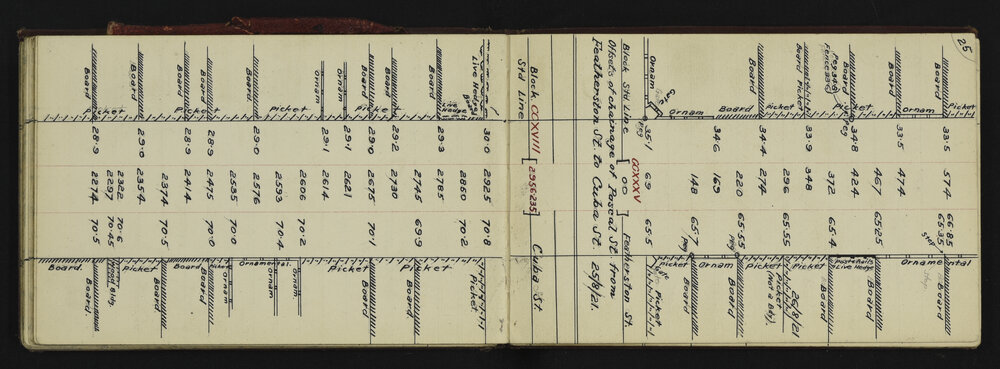 25
Picket 33.5 574 66.85
65.35 step Ornamental
Board
Ornam 33.5 474
467 65.25 Board
Picket
Board 34.8 424 Picket & Live Hedge
Peg 34.8
Fence 33.6
Peg
372 65.4 Board
Board Picket 33.9 348
Picket 296 65.55 Picket 26/8/21
Picket
(Not a Bdy).
Board 34.4 274 Picket
Board 34.6 220 65.55 Board
peg
169 Ornam
Ornam 148 65.7 Board
peg
Picket
Gate
Ornam 35.1 69 65.5 Gate Picket
Peg
Block CCXXXV Featherston St.
Std Line [ 00 ]
Offsets at chainage of Pascal St. from
Featherston St. to Cuba St. 25/8/21.
Block CCXVIII [2956235] Cuba St
Std Line
Live Hedge & Board 30.0 2925 70.8 Picket
Live Hedge 2860 70.2 Picket
Board 29.3 2785
2745 69.9 Board
Board 29.2 2730 Picket
Picket
Board 29.0 2675 70.1 Board
Ornam 29.1 2621 Picket
Ornam 29.1 2614
2606 70.2 Ornam.
Picket 2593 70.4 Ornam
Ornamental.
Board 29.0 2576
2535 70.0 Ornam
Picket
Board 28.9 2475 70.0 Board
Picket
Board 28.9 2414 Board
2374 70.5 Board
Board 29.0 2354 Picket
2322 70.6
2297 70.45 Wood Bldg.
Picket
Board 28.9 2274 70.5 Board
Board.